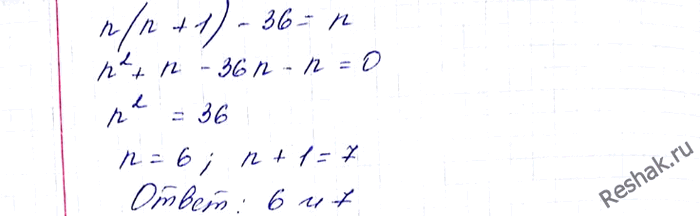 n(n+1) - 36 = n
n² + n - 36n - n = 0
n² = 36
n = 6; n + 1 = 7
Ответ: 6 и 7
Reshak.ru